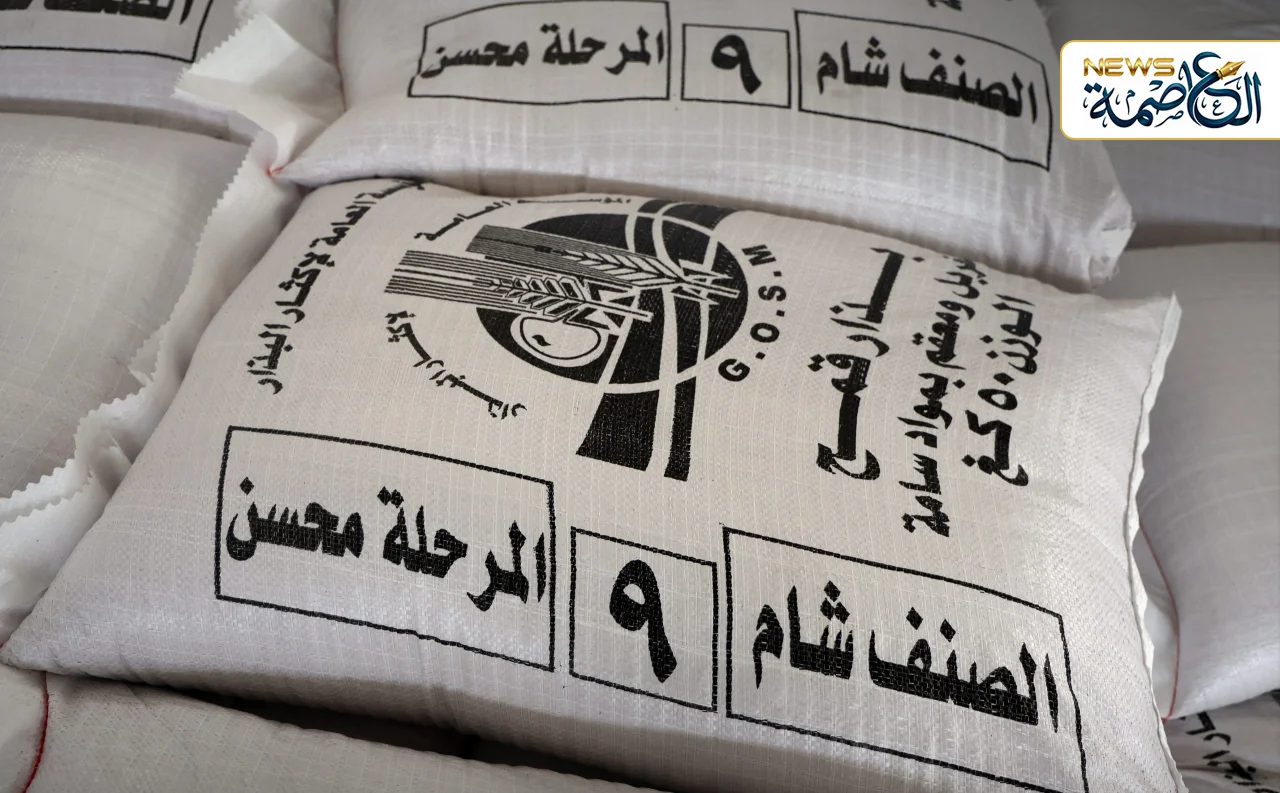 NEWS
العاصمة
الصنف شام
٩
المرحلة محسن
العامة لإكثار البذار
المؤسسة العامة
لإكثار البذار
G.O.S.M
بذار قمح
ومعقم بمواد سامة
الوزن ٥٠ كغ
الصنف شام
٩
المرحلة محسن